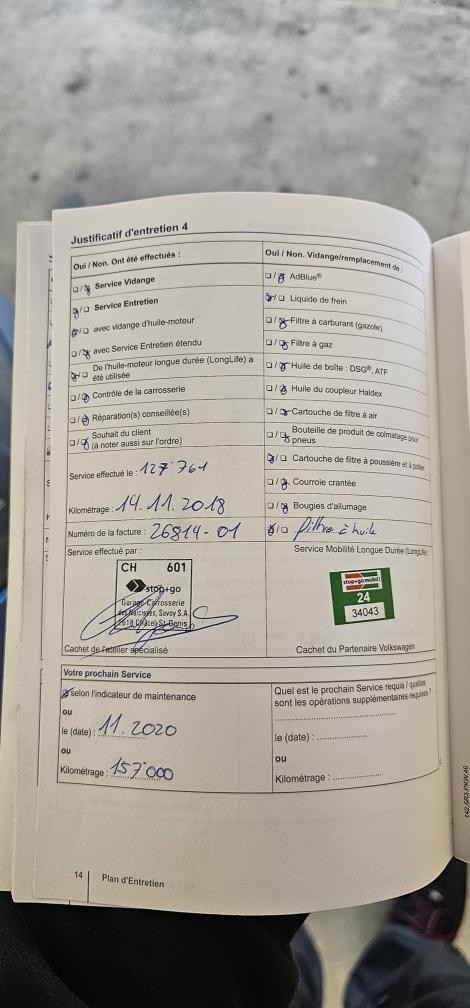 Justificatif d'entretien 4
Oui / Non. Ont été effectués :
Service Vidange
Service Entretien
avec vidange d'huile-moteur
avec Service Entretien étendu
De l'huile-moteur longue durée (LongLife) a
été utilisée
Contrôle de la carrosserie
Réparation(s) conseillée(s)
Souhait du client
(à noter aussi sur l'ordre)
Service effectué le : 127'761
Kilométrage : 14.11.2018
Numéro de la facture : 26814-01
Oui / Non. Vidange/remplacement de :
AdBlue®
Liquide de frein
Filtre à carburant (gazole)
Filtre à gaz
Huile de boîte : DSG®, ATF
Huile du coupleur Haldex
Cartouche de filtre à air
Bouteille de produit de colmatage pour
pneus
Cartouche de filtre à poussière et à pollen
Courroie crantée
Bougies d'allumage
filtre à huile
Service effectué par :
CH 601
stop+go
Garage-Carrosserie
des Narcisses, Savoy S.A.
1618 Châtel-St-Denis
Cachet de l'atelier spécialisé
Service Mobilité Longue Durée (LongLife)
stop+go mobil
24
34043
Cachet du Partenaire Volkswagen
Votre prochain Service
selon l'indicateur de maintenance
ou
le (date) : 11.2020
ou
Kilométrage : 157'000
Quel est le prochain Service requis / quelles
sont les opérations supplémentaires requises ?
le (date) :
ou
Kilométrage :
14 Plan d'Entretien